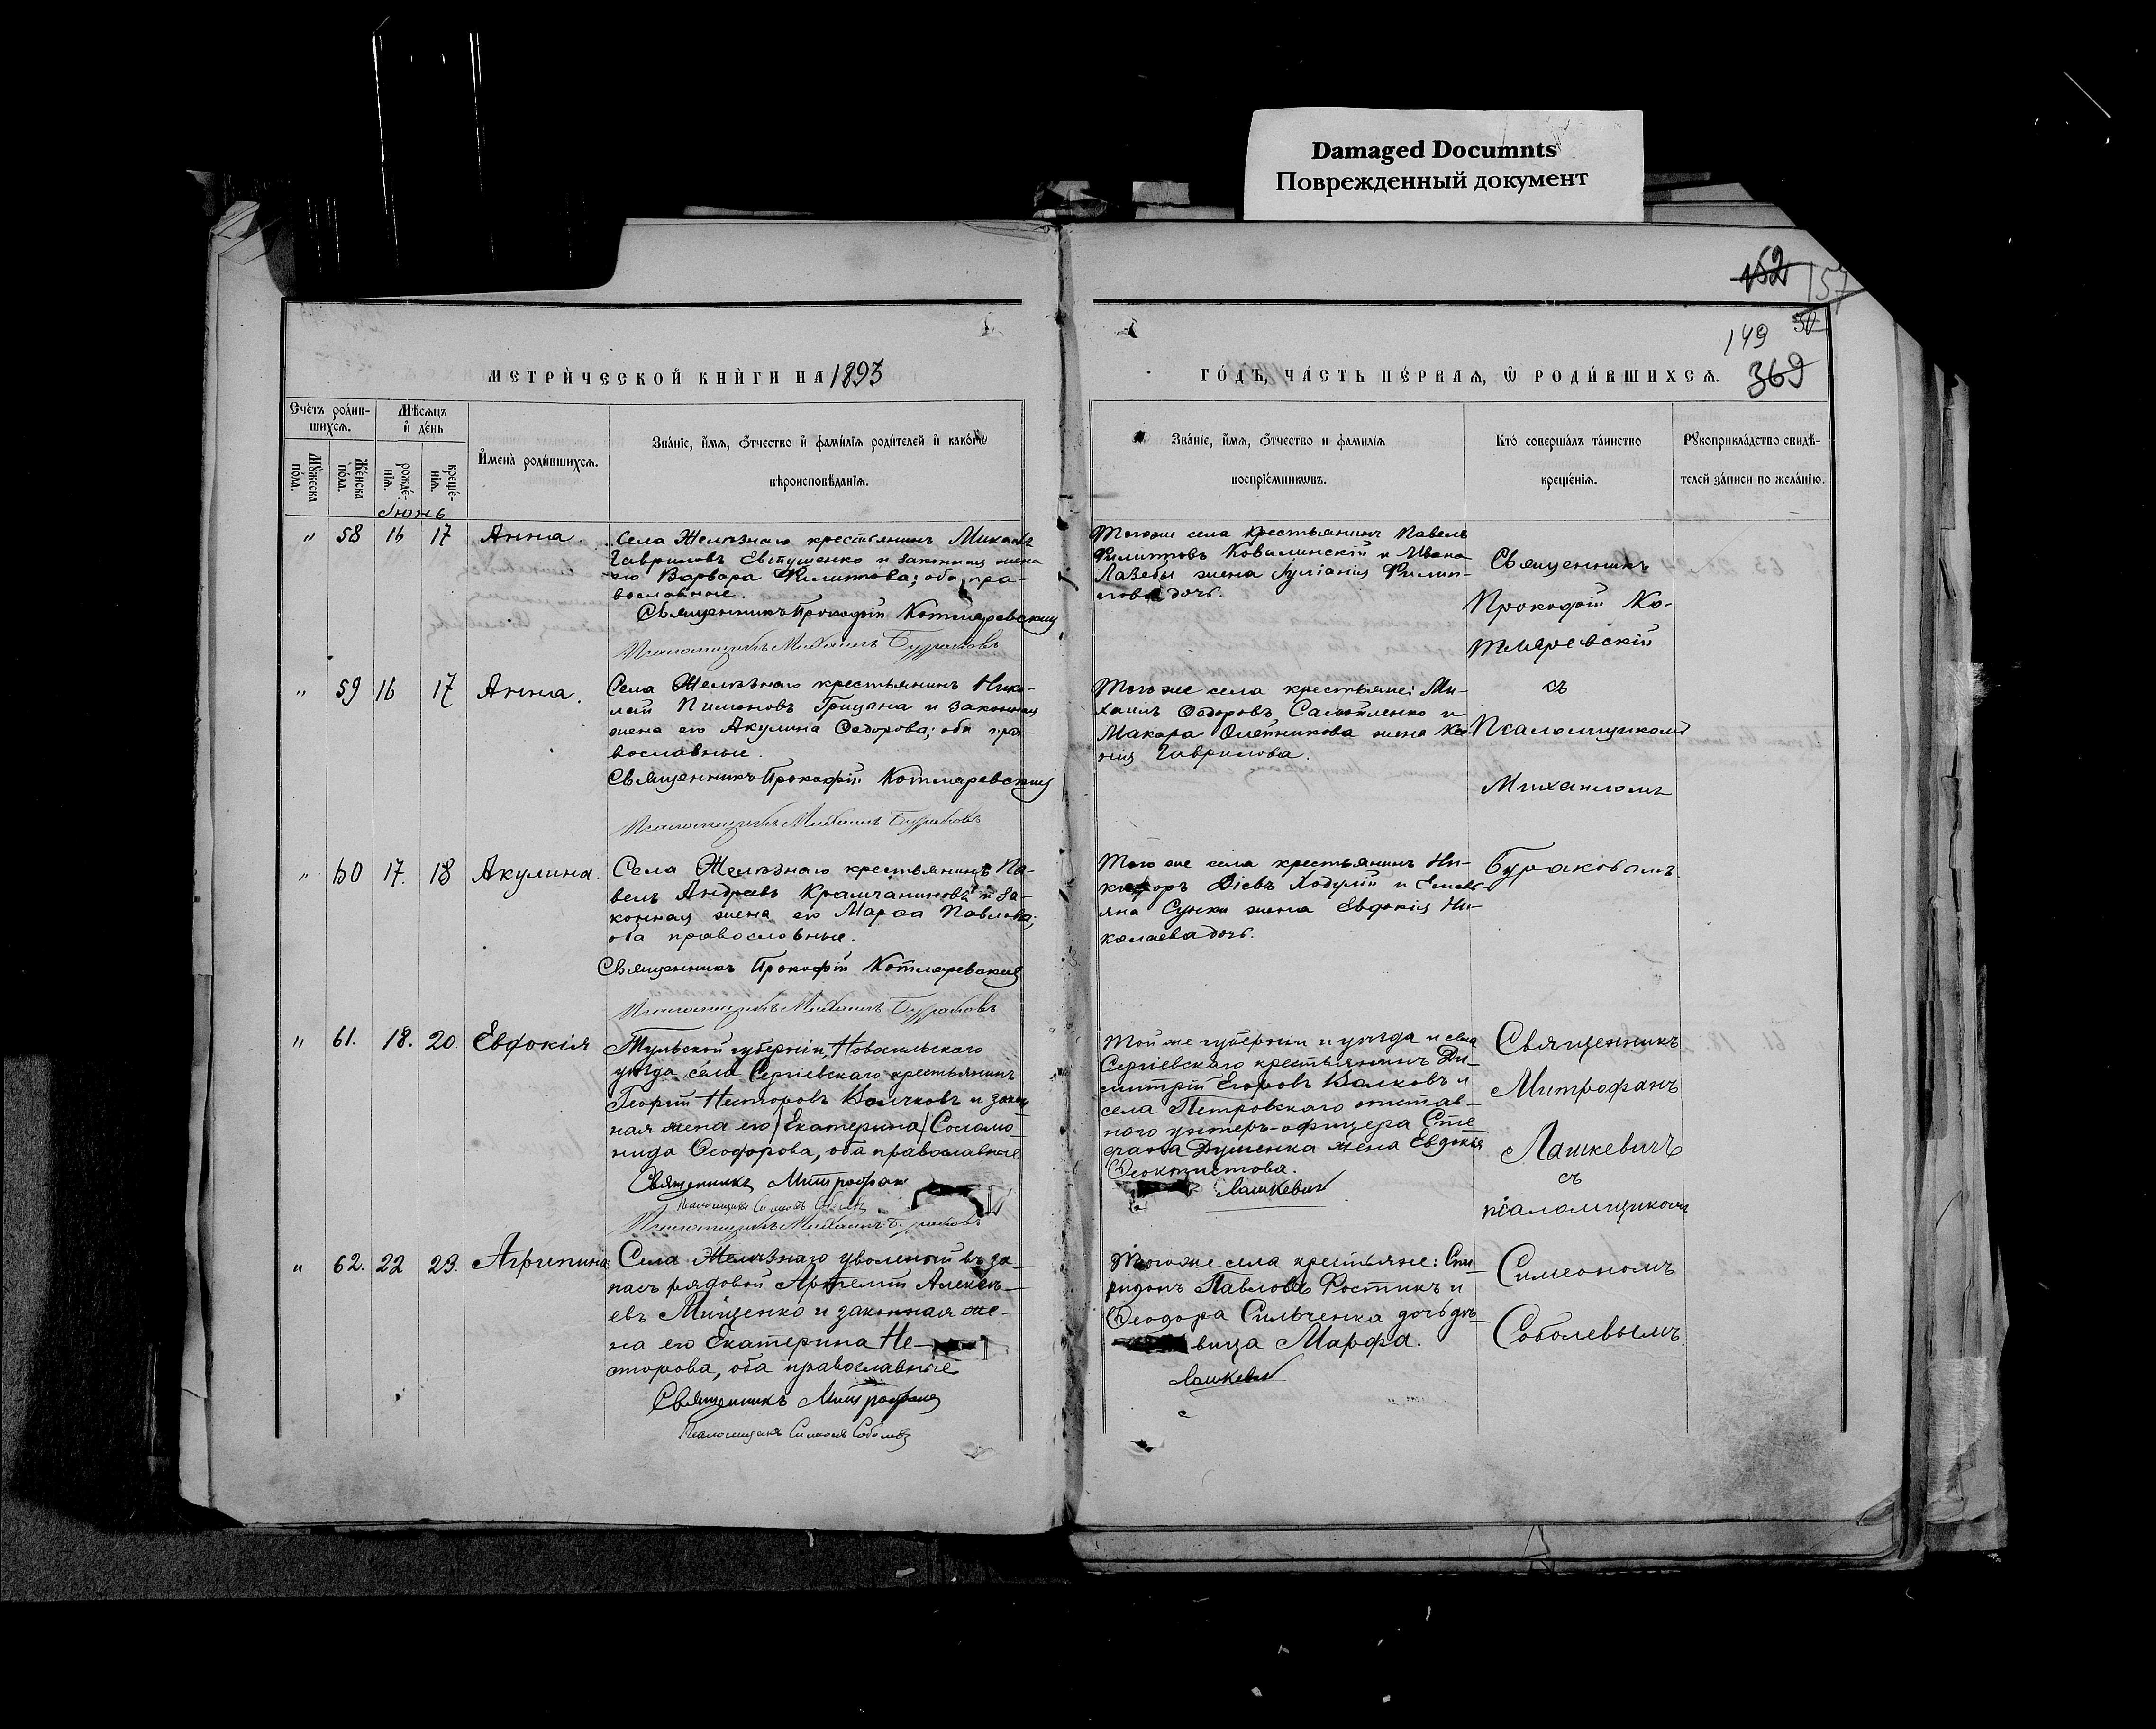 Damaged Documnts
Поврежденный документ
152
157
30
149
369
МЕТРИ́ЧЕСКОЙ КНИ́ГИ НА 1893
ГО́ДЪ, ЧА́СТЬ ПЕ́РВАѦ, Ѿ РОДИ́ВШИХСѦ.
Сче́тъ роди́в-
шихсѧ.
Мѣ́сѧцъ
и҆ де́нь
Мꙋ́жеска
по́ла.
Же́нска
по́ла.
рожде́-
нїѧ.
креще́-
нїѧ.
И҆мена̀ роди́вшихсѧ.
Зва́нїе, и҆́мѧ, ѻ҆́тчество и҆ фами́лїѧ роди́телей и҆ како́гѡ
вѣроисповѣ́данїѧ.
Зва́нїе, и҆́мѧ, ѻ҆́тчество и фами́лїѧ
воспрїе́мникѡвъ.
Кто̀ соверша́лъ та́инство
креще́нїѧ.
Рꙋкоприкла́дство свидѣ́-
телей за́писи по жела́нїю.
Іюнь
" 58 16 17 Анна.
Села Желѣзнаго крестьянинъ Михаилъ
Гавриловъ Евтушенко и законная жена
его Варвара Филиппова; оба пра-
вославные.
Священникъ Прокофій Котляревскій
Псаломщикъ Михаилъ Бураковъ
Того же села крестьянинъ Павелъ
Филипповъ Ковалинскій и Ивана
Лазебы жена Іуліанія Филип-
пова дочь.
Священникъ
Прокофій Ко-
тляревскій
съ
Псаломщикомъ
Михаиломъ
Бураковымъ.
" 59 16 17 Анна.
Села Желѣзнаго крестьянинъ Нико-
лай Пимоновъ Грицына и законная
жена его Акулина Ѳедорова; оба пра-
вославные.
Священникъ Прокофій Котляревскій
Псаломщикъ Михаилъ Бураковъ
Того же села крестьяне: Ми-
хаилъ Ѳедоровъ Самойленко и
Макара Олейникова жена Ксе-
нія Гаврилова.
" 60 17. 18 Акулина.
Села Желѣзнаго крестьянинъ Па-
велъ Андреевъ Крамчаниновъ и за-
конная жена его Марѳа Павлова;
оба православные.
Священникъ Прокофій Котляревскій
Псаломщикъ Михаилъ Бураковъ
Того же села крестьянинъ Ни-
кифоръ Ходулій и Емель-
яна Сунки жена Евдокія Ни-
колаева дочь.
" 61. 18. 20. Евдокія
Тульской губерніи, Новосильскаго
уѣзда села Сергіевскаго крестьянинъ
Георгій Несторовъ и закон
ная жена его /Екатерина/ Соломо-
нида Ѳеодорова, оба православные.
Священникъ Митрофанъ
Псаломщикъ Симеонъ Соболевъ
Псаломщикъ Михаилъ Бураковъ
Той же губерніи и уѣзда и села
Сергіевскаго крестьянинъ Ди-
митрій Егоровъ Волковъ и
села Петровскаго отстав-
ного унтеръ-офицера Сте
фана Душенка жена Евдокія
Ѳеоктистова.
Лашкевич
Священникъ
Митрофанъ
Лашкевичъ
съ
псаломщикомъ
Симеономъ
Соболевымъ.
" 62. 22 23. Агрипина.
Села Желѣзнаго уволеный въ за-
пасъ рядовой Алексѣ-
евъ Мищенко и законная же-
на его Екатерина Не-
сторова, оба православные
Священникъ Митрофанъ
Псаломщикъ Симеонъ Соболевъ
Того же села крестьяне: Спи
ридонъ Павловъ Ростикъ и
Ѳеодора Сильченка дочь дѣ-
вица Марфа.
Лашкевич